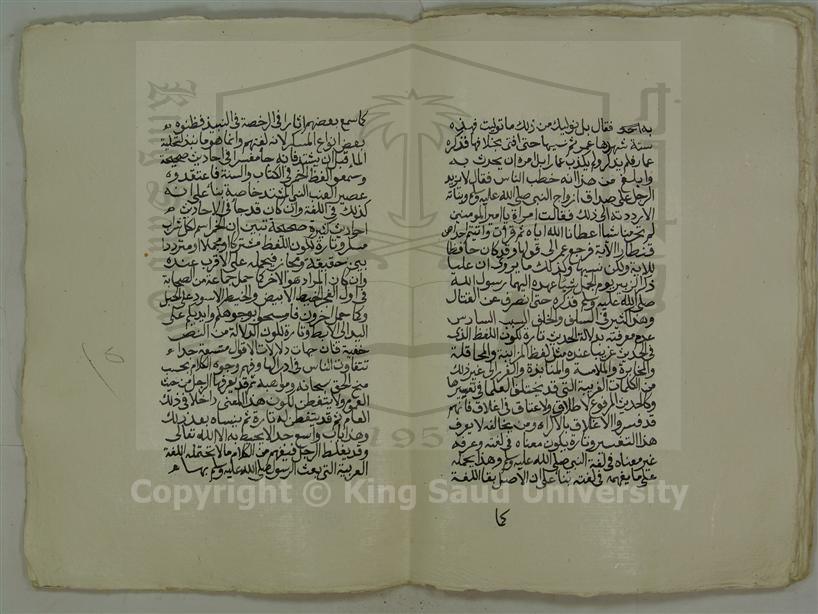 به احد فقال بل نوليك من ذلك ما توليت فهذه
سنة شهدها عمر ثم نسيها حتى افتى بخلافها فذكره
عمار فلم يذكر ولم يكذب عمار بل امره ان يحدث به
وابلغ من هذا انه خطب الناس فقال لا يزيد
الرجل على صداق ازواج النبي صلى الله عليه وسلم وبناته
الا رددته الى ذلك فقالت امراة يا امير المؤمنين
لم تحرمنا شيا اعطانا الله اياه ثم قرأت واتيتم احداهن
قنطارا الاية فرجع عمر الى قولها وقد كان حافظا
للاية ولكن نسيها وكذلك ما روى ان عليا
ذكر الزبير يوم الجمل شيا عهده اليهما رسول الله
صلى الله عليه وسلم فذكره حتى انصرف عن القتال
وهذا كثير في السلف والخلف السبب السادس
عدم معرفته بدلالة الحديث تارة لكون اللفظ الذي
في الحديث غريبا عنده مثل لفظ المزابنة والمحاقلة
والمخابرة والملامسة والمنابذة والغرر الى غير ذلك
من الكلمات الغريبة التي قد يختلف العلما في تفسيرها
وكالحديث المرفوع لا طلاق ولا عتاق في اغلاق فانهم
قد فسروا الاغلاق بالاكراه ومن يخالفه لا يعرف
هذا التفسير وتارة يكون معناه في لغته وعرفه
غير معناه في لغة النبي صلى الله عليه وسلم وهذا يحمله
على ما يفهمه في لغته بنا على ان الاصل بقا اللغة
كما
كما سمع بعضهم اثارا في الرخصة في النبيذ فظنوه
بعض انواع المسكر لانه لغتهم وانما هو ما ينبذ لتحلية
الما قبل ان يشتد فانه جا مفسرا في احاديث صحيحة
وسمعوا لفظ الخمر في الكتاب والسنة فاعتقدوه
عصير العنب النبي المشتد خاصة بنا على انه
كذلك في اللغة وان كان قد جا في الاحاديث
احاديث كثيرة صحيحة تبين ان الخمر اسم لكل شراب
مسكر وتارة لكون اللفظ مشتركا او مجملا او مترددا
بين حقيقة ومجاز فيحمله على الاقرب عنده
وان كان المراد هو الاخر كما حمل جماعة من الصحابة
في اول الفجر الخيط الابيض والخيط الاسود على الحبل
وكما حمل اخرون فامسحوا بوجوهكم وايديكم على
اليد الى الابط وتارة لكون الدلالة من النص
خفية فان جهات دلالات الاقوال متسعة جدا
تتفاوت الناس في ادراكها وفهم وجوه الكلام بحسب
منح الحق سبحانه ومواهبه ثم قد يعرفها الرجل من حيث
العموم ولا يتفطن لكون هذا المعنى داخلا في ذلك
العام ثم قد يتفطن له تارة ثم ينساه بعد ذلك
وهذا باب واسع جدا لا يحيط به الا الله تعالى
وقد يغلط الرجل فيفهم من الكلام ما لا تحتمله اللغة
العربية التي بعث الرسول صلى الله عليه وسلم بها
1957
Copyright © King Saud University